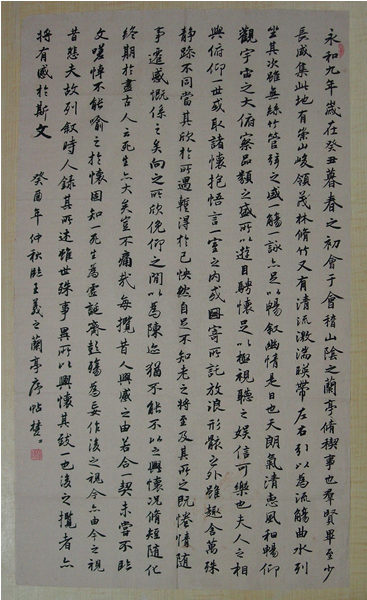 永和九年歲在癸丑暮春之初會于會稽山陰之蘭亭脩禊事也群賢畢至少
長咸集此地有崇山峻領茂林脩竹又有清流激湍暎帶左右引以為流觴曲水列
坐其次雖無絲竹管弦之盛一觴一詠亦足以暢叙幽情是日也天朗氣清惠風和暢仰
觀宇宙之大俯察品類之盛所以遊目騁懷足以極視聽之娛信可樂也夫人之相
與俯仰一世或取諸懷抱悟言一室之內或因寄所託放浪形骸之外雖趣舍萬殊
靜躁不同當其欣於所遇暫得於己怏然自足不知老之將至及其所之既惓情隨
事遷感慨係之矣向之所欣俛仰之間以為陳迹猶不能不以之興懷況脩短隨化
終期於盡古人云死生亦大矣豈不痛哉每攬昔人興感之由若合一契未嘗不臨
文嗟悼不能喻之於懷固知一死生為虛誕齊彭殤為妄作後之視今亦由今之視
昔悲夫故列叙時人錄其所述雖世殊事異所以興懷其致一也後之攬者亦
將有感於斯文 癸酉年仲秋臨王羲之蘭亭序帖